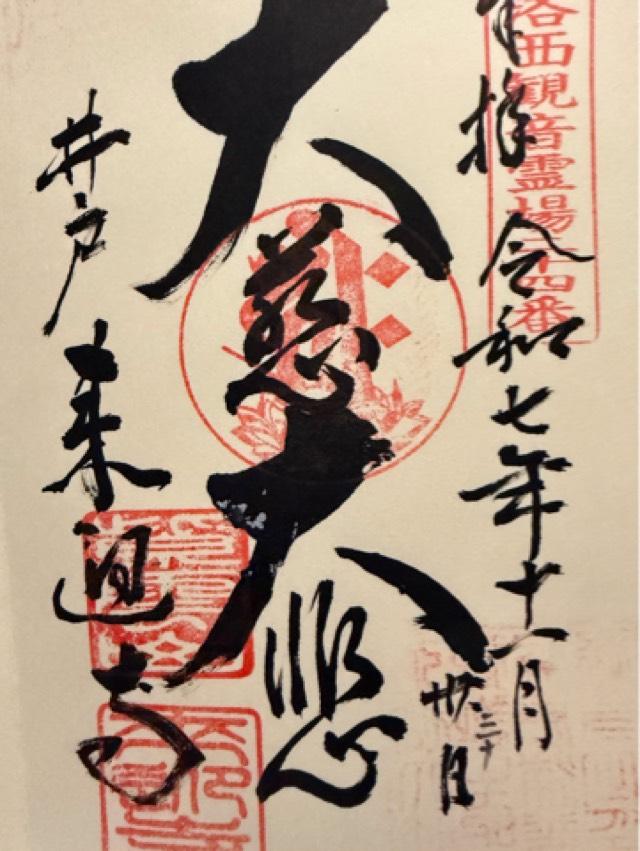 洛西観音霊場二十四番
奉拝 令和七年十一月
卅日
三十
大慈大悲
井戸 来迎寺